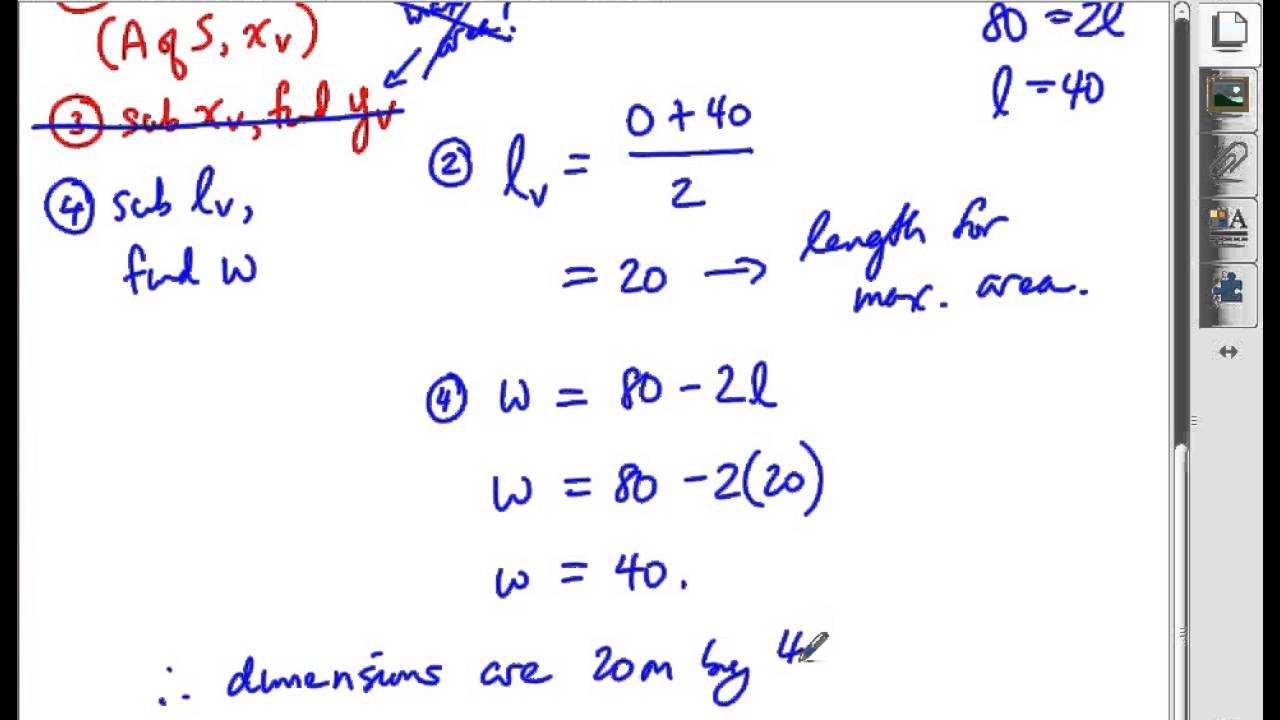 (A of S, xᵥ)
area!
③ sub xᵥ, find yᵥ
④ sub lᵥ,
find w
80 = 2l
l = 40
② lᵥ = 0 + 40
2
= 20 → length for
max. area.
④ w = 80 - 2l
w = 80 - 2(20)
w = 40.
∴ dimensions are 20m by 4
A